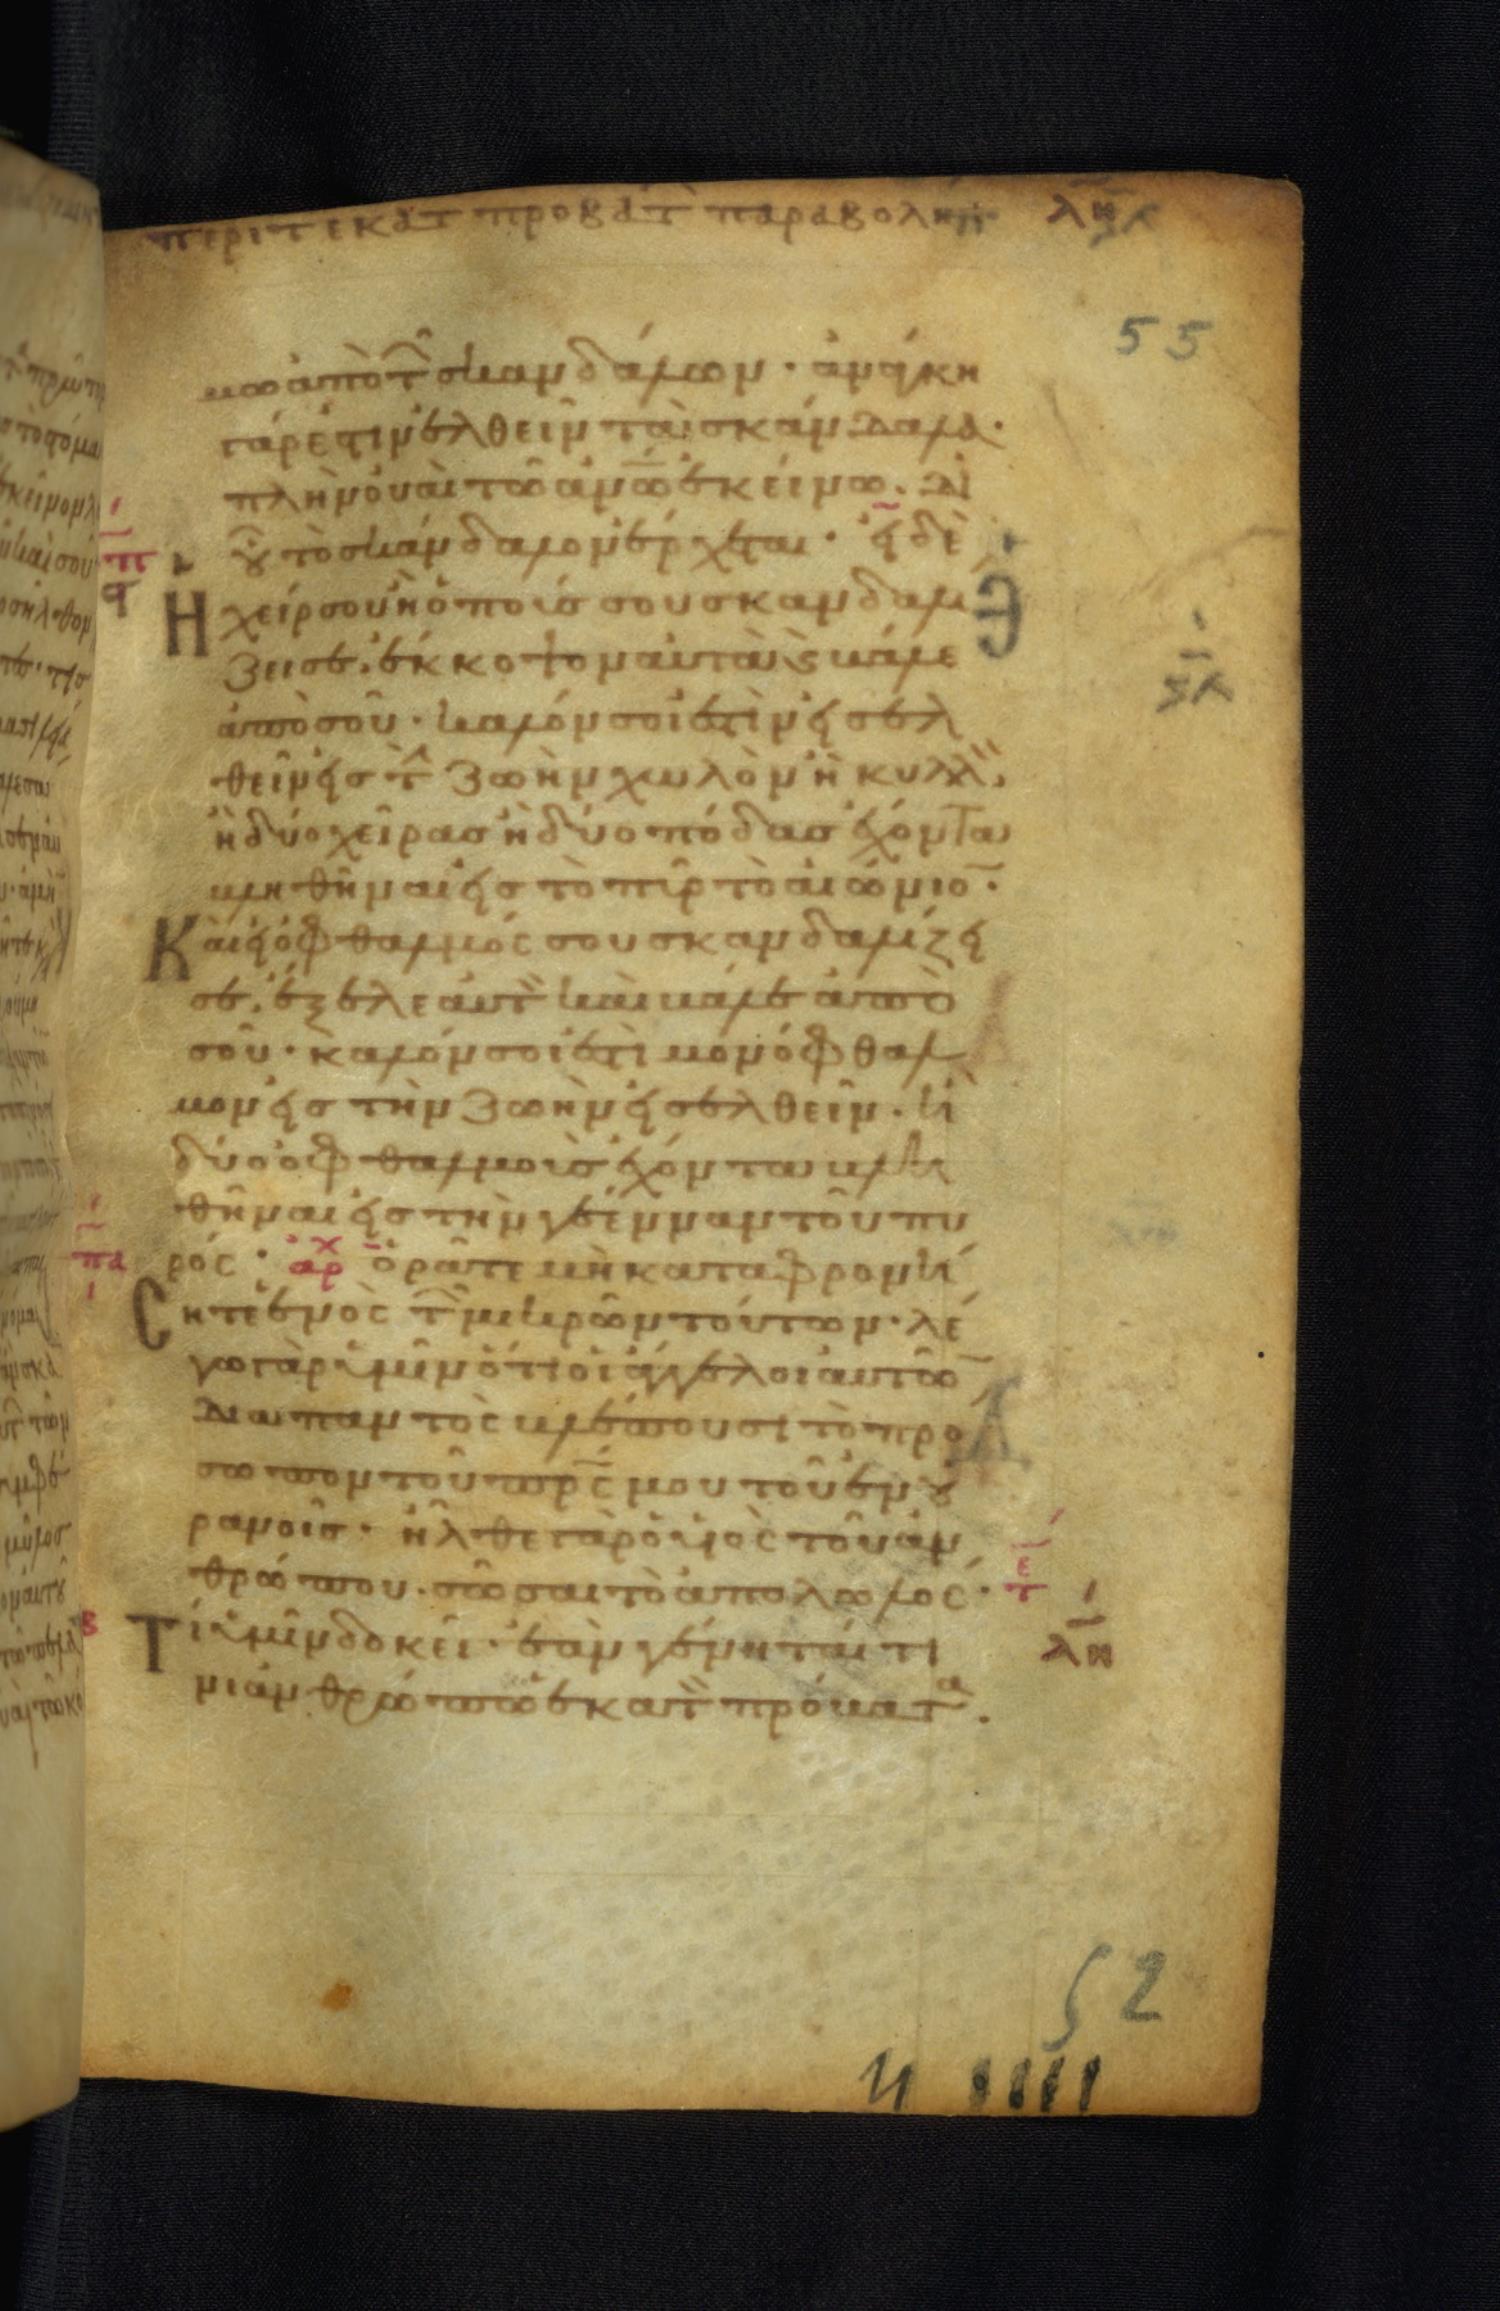 περι τ εκατ προβατ παραβολη λη
55
μω ἀπὸ τῶ σκανδάλων · ἀνάγκη
γάρ ἐστιν ἐλθεῖν τὰ σκάνδαλα ·
πλὴν οὐαὶ τῶ ἀνω̅ ἐκείνω · δι
οὗ τὸ σκάνδαλον ἔρχεται · εἰ δὲ
π
ϙ
Ἡ χείρ σου ἢ ὁ ποῦς σου σκανδαλί
ζει σε · ἔκκοψον αὐτὰ ϗ βάλε
ἀπὸ σοῦ · καλόν σοι ἐστὶν εἰσελ
θεῖν εἰς τ ζωὴν χωλὸν ἢ κυλλὸ
ἢ δύο χεῖρας ἢ δύο πόδας ἔχοντα
βληθῆναι εἰς τὸ πῦρ τὸ αἰώνιο̅ ·
Καὶ εἰ ὁ ὀφθαλμός σου σκανδαλίζει
σε · ἔξελε αὐτὸ καὶ βάλε ἀπὸ
σοῦ · καλόν σοι ἐστὶ μονόφθαλ
μον εἰς τὴν ζωὴν εἰσελθεῖν · ἢ
δύο ὀφθαλμοὺς ἔχοντα βλη
θῆναι εἰς τὴν γέενναν τοῦ πυ
πα
ρός · ἀρχ ὁρᾶτε μὴ καταφρονή
Σητε ἑνὸς τῶ μικρῶν τούτων · λέ
γω γὰρ ὑμῖν ὅτι οἱ ἄγγελοι αὐτῶ̅
διαπαντὸς βλέπουσι τὸ πρό
σωπον τοῦ πρ̅ς μου τοῦ ἐν οὐ
ρανοῖς · ἦλθε γὰρ ὁ υἱὸς τοῦ ἀν
θρώπου · σῶσαι τὸ ἀπολωλός · τε
Τί ὑμῖν δοκεῖ · ἐὰν γένηται τι
λη
νι ἀνθρώπω ἑκατὸ πρόβατα ·
52